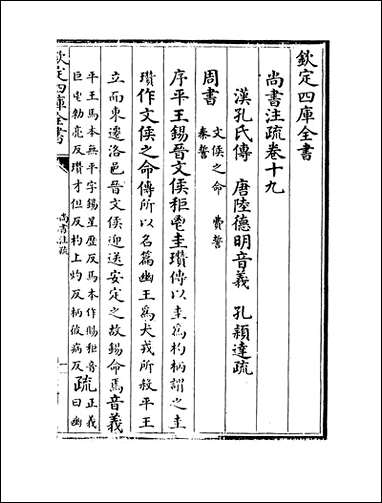 欽定四庫全書
尚書注疏卷十九
漢孔氏傳　唐陸德明音義　孔穎達疏
周書
文侯之命　費誓
秦誓
序平王錫晉文侯秬鬯圭瓚傳以圭為杓柄謂之圭
瓚作文侯之命傳所以名篇幽王為犬戎所殺平王
立而東遷洛邑晉文侯迎送安定之故錫命焉音義
平王馬本無平字錫星歷反馬本作賜秬音
巨鬯勑亮反瓚才但反杓上灼反柄彼病反
疏
正義
曰幽
欽定四庫全書
尚書注疏
一